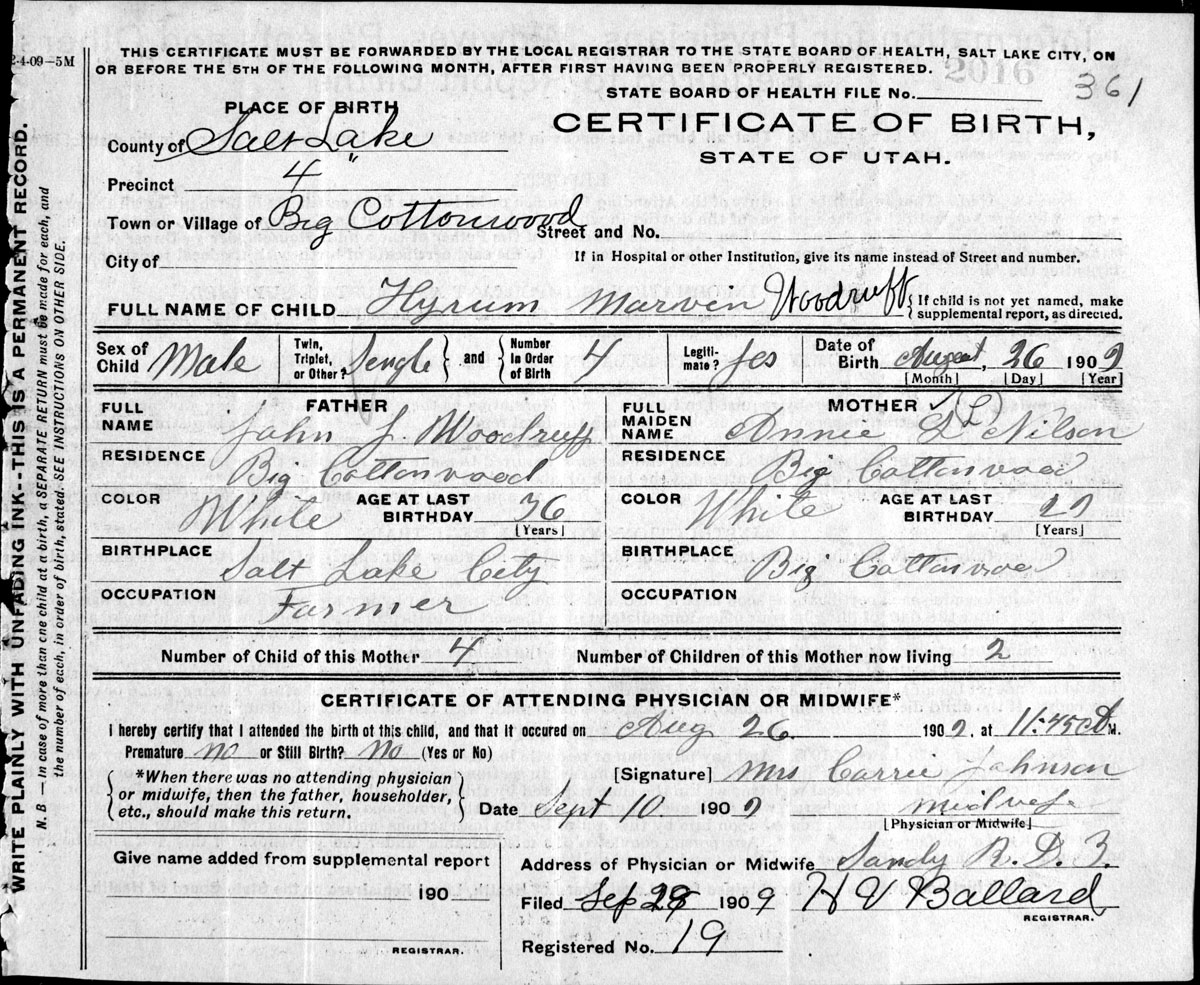 2-4-09-5M
THIS CERTIFICATE MUST BE FORWARDED BY THE LOCAL REGISTRAR TO THE STATE BOARD OF HEALTH, SALT LAKE CITY, ON
OR BEFORE THE 5TH OF THE FOLLOWING MONTH, AFTER FIRST HAVING BEEN PROPERLY REGISTERED.
2016
STATE BOARD OF HEALTH FILE No. 361
PLACE OF BIRTH
CERTIFICATE OF BIRTH,
STATE OF UTAH.
County of Salt Lake
Precinct 4"
Town or Village of Big Cottonwood Street and No.
City of If in Hospital or other Institution, give its name instead of Street and number.
FULL NAME OF CHILD Hyrum Marven Woodruff { If child is not yet named, make
supplemental report, as directed.
Sex of Child Male Twin, Triplet, or Other? Sengle } and { Number in Order of Birth 4 Legiti-mate? yes Date of Birth August, 26 1909
[Month] [Day] [Year]
FATHER MOTHER
FULL NAME John J. Woodruff FULL MAIDEN NAME Annie L Nilson
RESIDENCE Big Cottonwood RESIDENCE Big Cottonwood
COLOR White AGE AT LAST BIRTHDAY COLOR White AGE AT LAST BIRTHDAY
[Years] [Years]
BIRTHPLACE Salt Lake City BIRTHPLACE Big Cottonwood
OCCUPATION Farmer OCCUPATION
Number of Child of this Mother 4 Number of Children of this Mother now living 2
CERTIFICATE OF ATTENDING PHYSICIAN OR MIDWIFE*
I hereby certify that I attended the birth of this child, and that it occured on Aug 26. 1909, at 11:45 M.
Premature no or Still Birth? No (Yes or No)
*When there was no attending physician
or midwife, then the father, householder,
etc., should make this return.
[Signature] Mrs Carrie Johnson
Date Sept 10 1909 midvefe
[Physician or Midwife]
Give name added from supplemental report
190
REGISTRAR.
Address of Physician or Midwife Sandy R. D. 3.
Filed Sep 28 1909 H V Ballard
REGISTRAR.
Registered No. 19
WRITE PLAINLY WITH UNFADING INK--THIS IS A PERMANENT RECORD.
N. B.—In case of more than one child at a birth, a SEPARATE RETURN must be made for each, and
the number of each, in order of birth, stated. SEE INSTRUCTIONS ON OTHER SIDE.